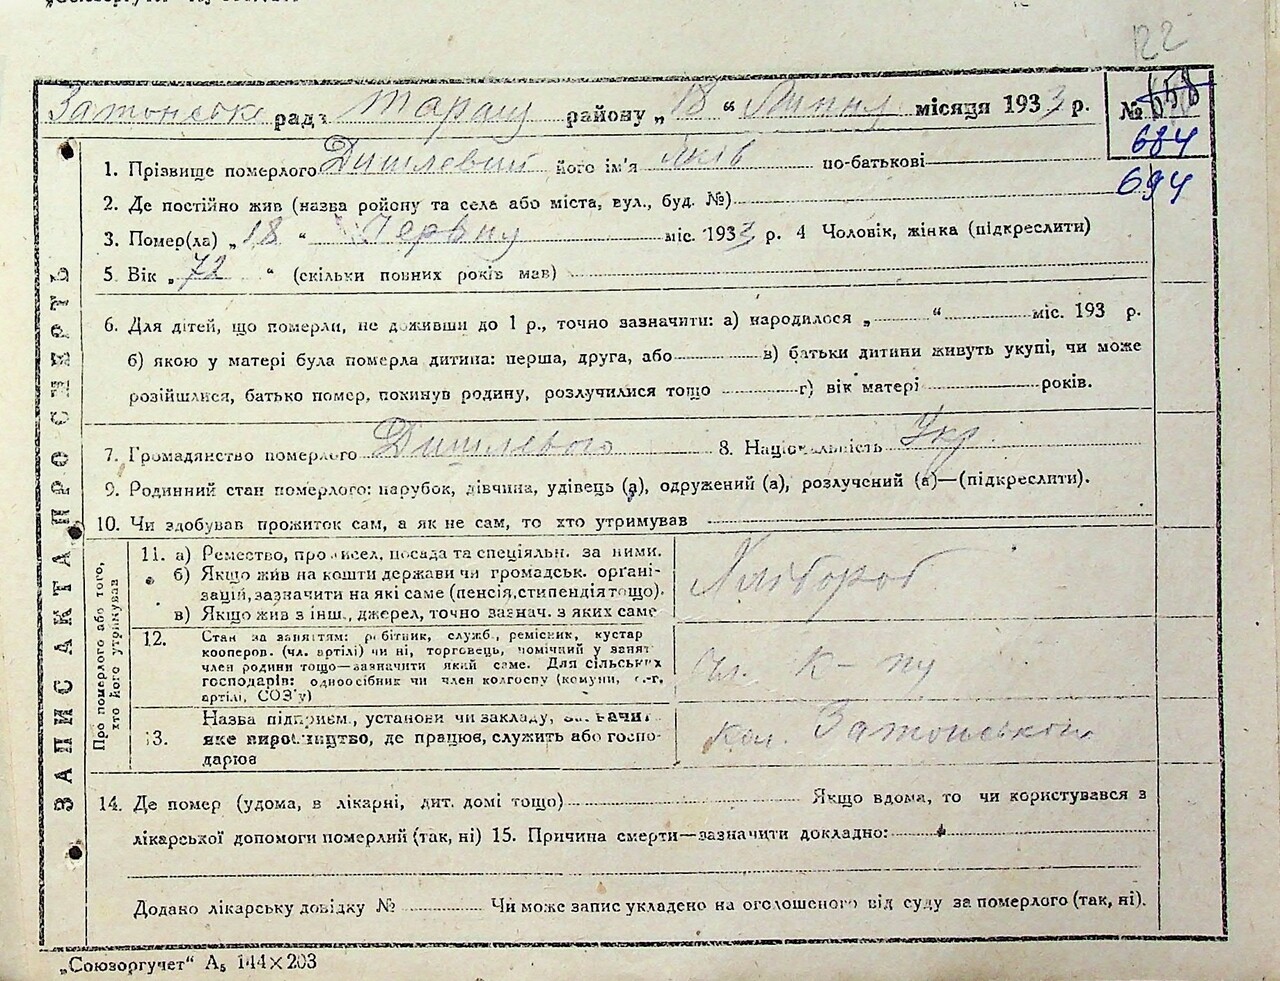 122
Затонське рада Таращ району „18“ Липня місяця 1933 р. № 658
684
694
1. Прізвище померлого Дишлевий його ім'я Яків по-батькові
2. Де постійно жив (назва ройону та села або міста, вул., буд. №)
3. Помер(ла) „18“ Червня міс. 1933 р. 4 Чоловік, жінка (підкреслити)
5. Вік „72“ (скільки повних років мав)
6. Для дітей, що померли, не доживши до 1 р., точно зазначити: а) народилося „ “ міс. 193 р.
б) якою у матері була померла дитина: перша, друга, або в) батьки дитини живуть укупі, чи може
розійшлися, батько помер, покинув родину, розлучилися тощо г) вік матері років.
7. Громадянство померлого Дишлевого 8. Національність Укр.
9. Родинний стан померлого: парубок, дівчина, удівець (а), одружений (а), розлучений (а)—(підкреслити).
10. Чи здобував прожиток сам, а як не сам, то хто утримував
ЗАПИС АКТА ПРО СМЕРТЬ
Про померлого або того,
хто його утримував
11. а) Ремество, промисел, посада та спеціяльн. за ними.
б) Якщо жив на кошти держави чи громадськ. органі-
зацій, зазначити на які саме (пенсія, стипендія тощо).
в) Якщо жив з інш., джерел, точно зазнач. з яких саме
Хлібороб
12. Стан за заняттям: робітник, служб, ремісник, кустар
кооперов. (чл. артілі) чи ні, торговець, помічний у занят
член родини тощо—зазначити який саме. Для сільських
господарів: одноосібник чи член колгоспу (комуни, с.-г.
артілі, СОЗ'у)
Чл. к-пу
13. Назва підприєм., установи чи закладу, зазначит
яке виробництво, де працює, служить або госпо-
дарює
Кол. Затонський
14. Де помер (удома, в лікарні, дит. домі тощо) Якщо вдома, то чи користувався з
лікарської допомоги померлий (так, ні) 15. Причина смерти—зазначити докладно:
Додано лікарську довідку № Чи може запис укладено на оголошеного від суду за померлого (так, ні).
„Союзоргучет“ А₅ 144×203